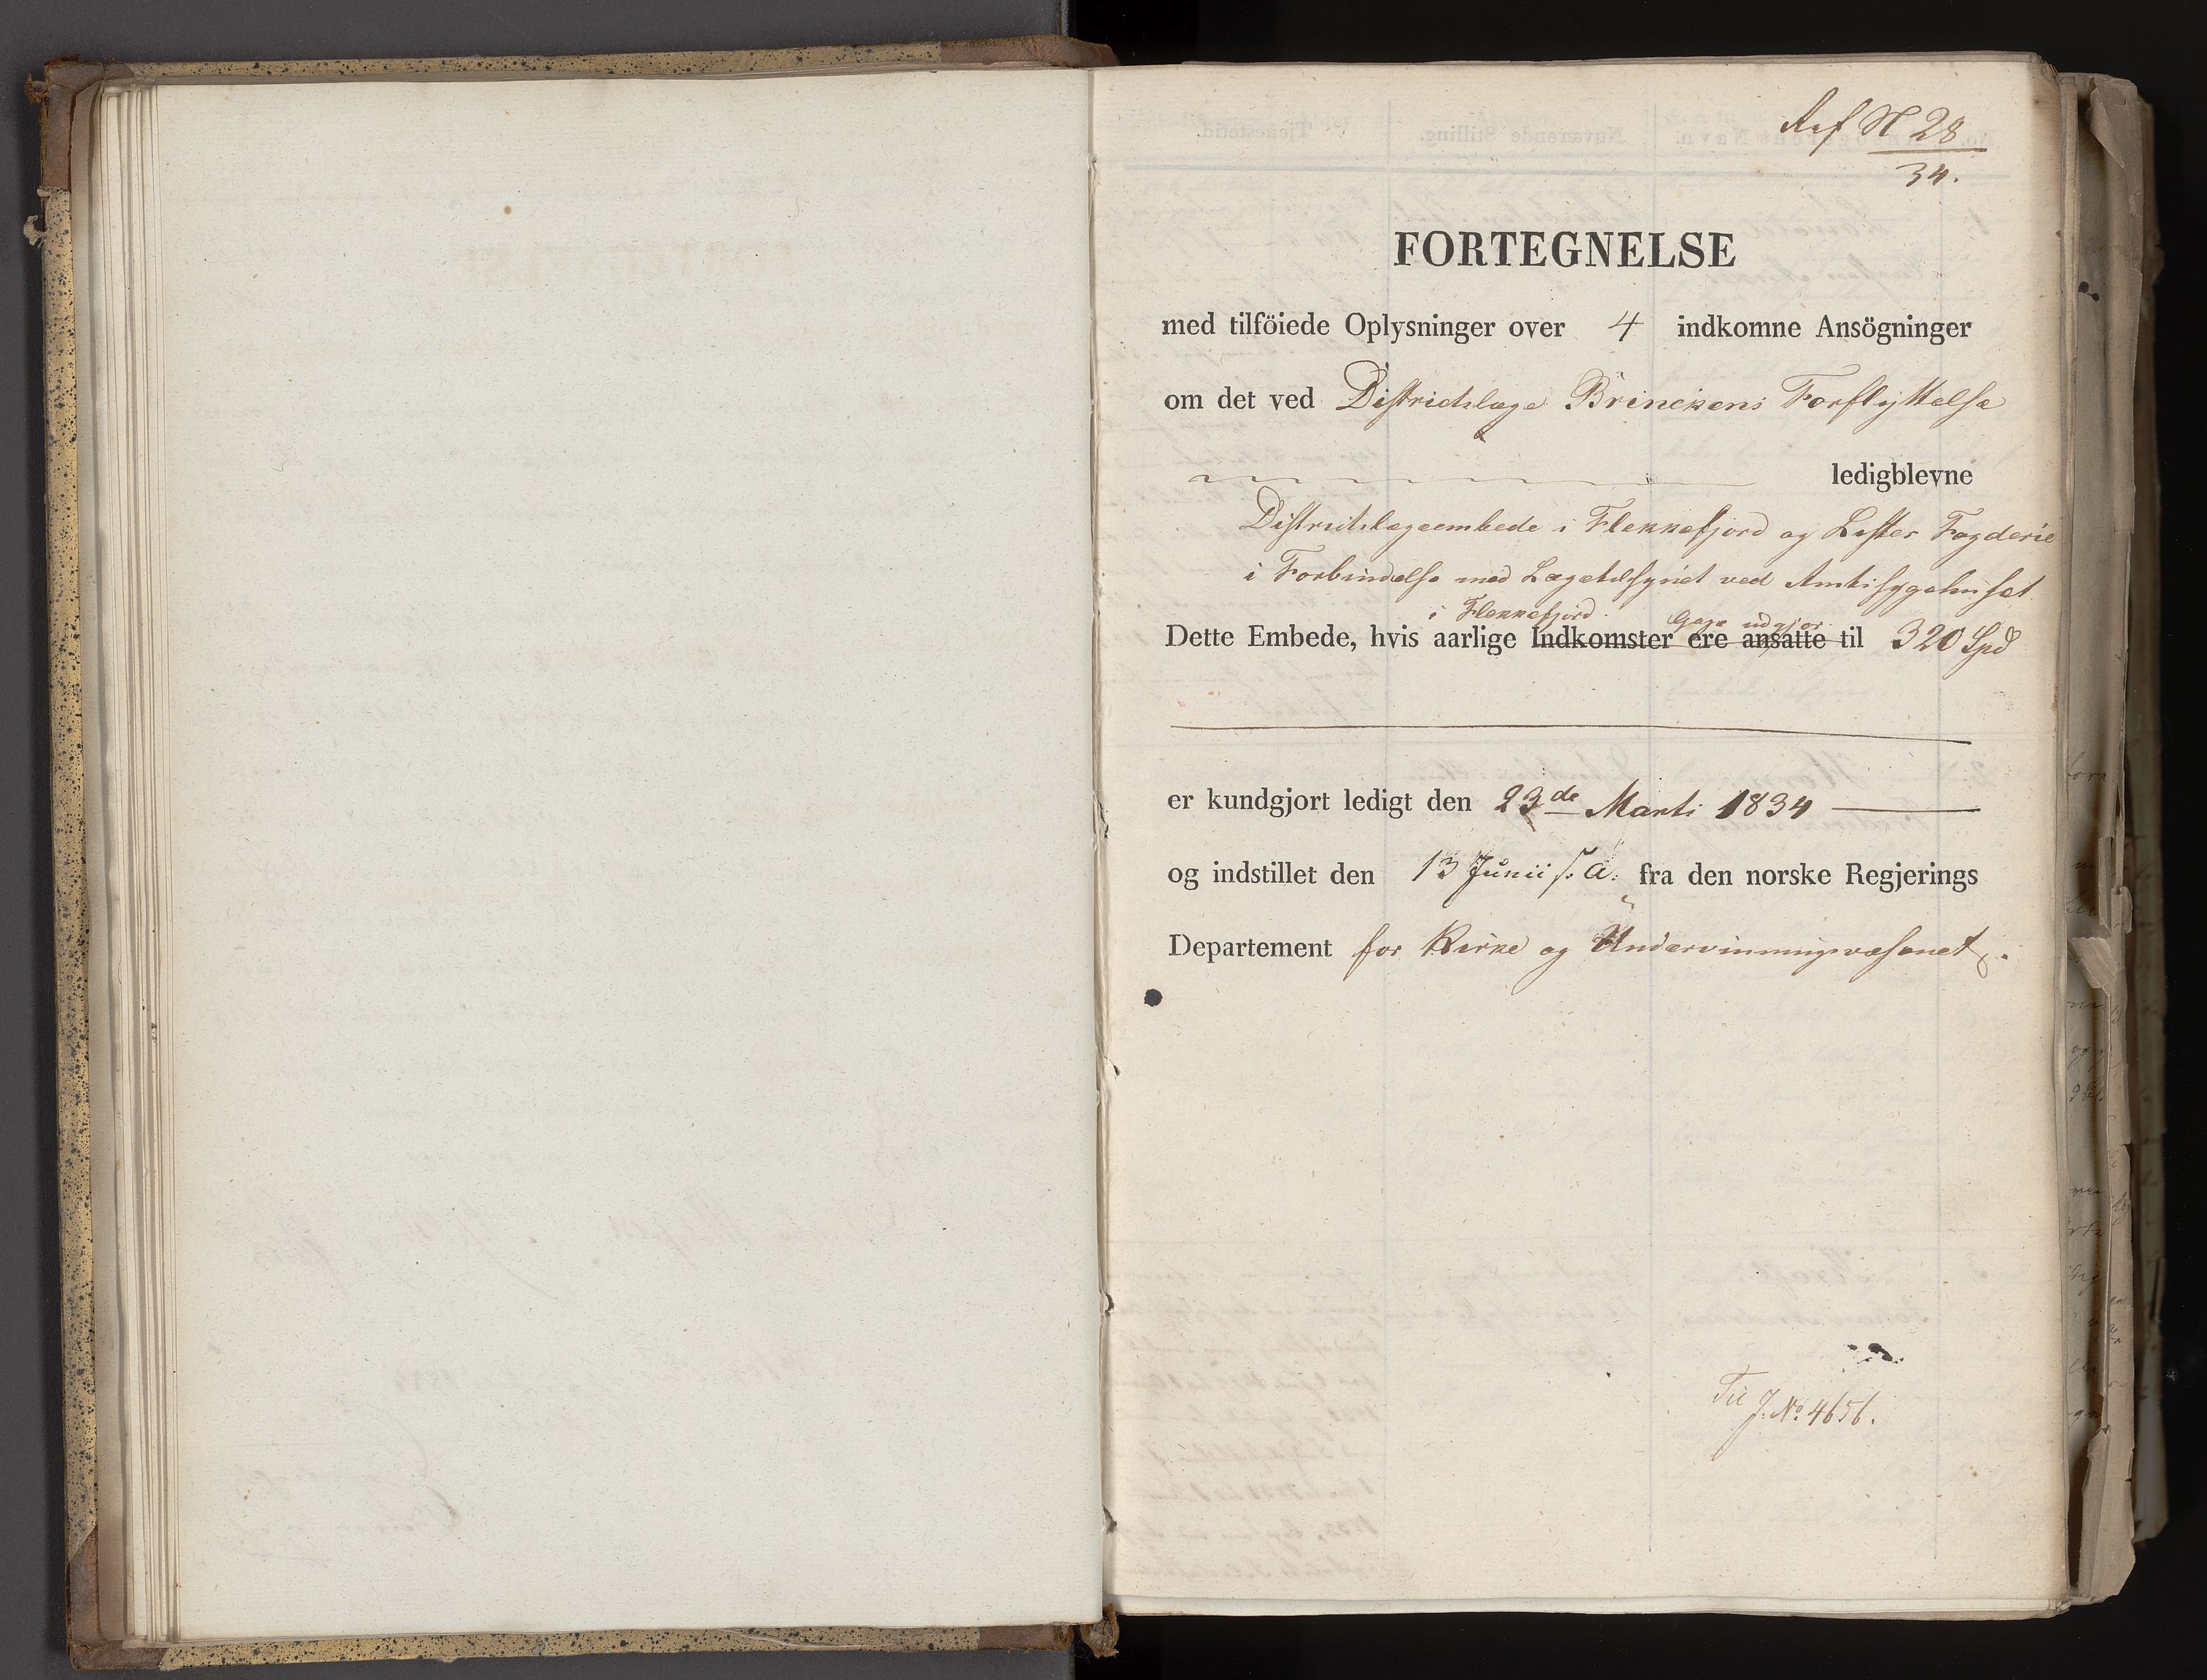 Ref N 28
34.
FORTEGNELSE
med tilföiede Oplysninger over 4 indkomne Ansögninger
om det ved Districtslæge Brinckens Forflyttelse
ledigblevne
Districtslægeembede i Flekkefjord og Lister Fogderie
i Forbindelse med Lægetilsynet ved Amtssygehuset
i Flekkefjord. Gage udgjør
Dette Embede, hvis aarlige Indkomster ere ansatte til 320 Spd
er kundgjort ledigt den 23de Marts 1834
og indstillet den 13 Junii s. A. fra den norske Regjerings
Departement for Kirke og Underviisningsvæsenet.
Til
J. No. 4656.